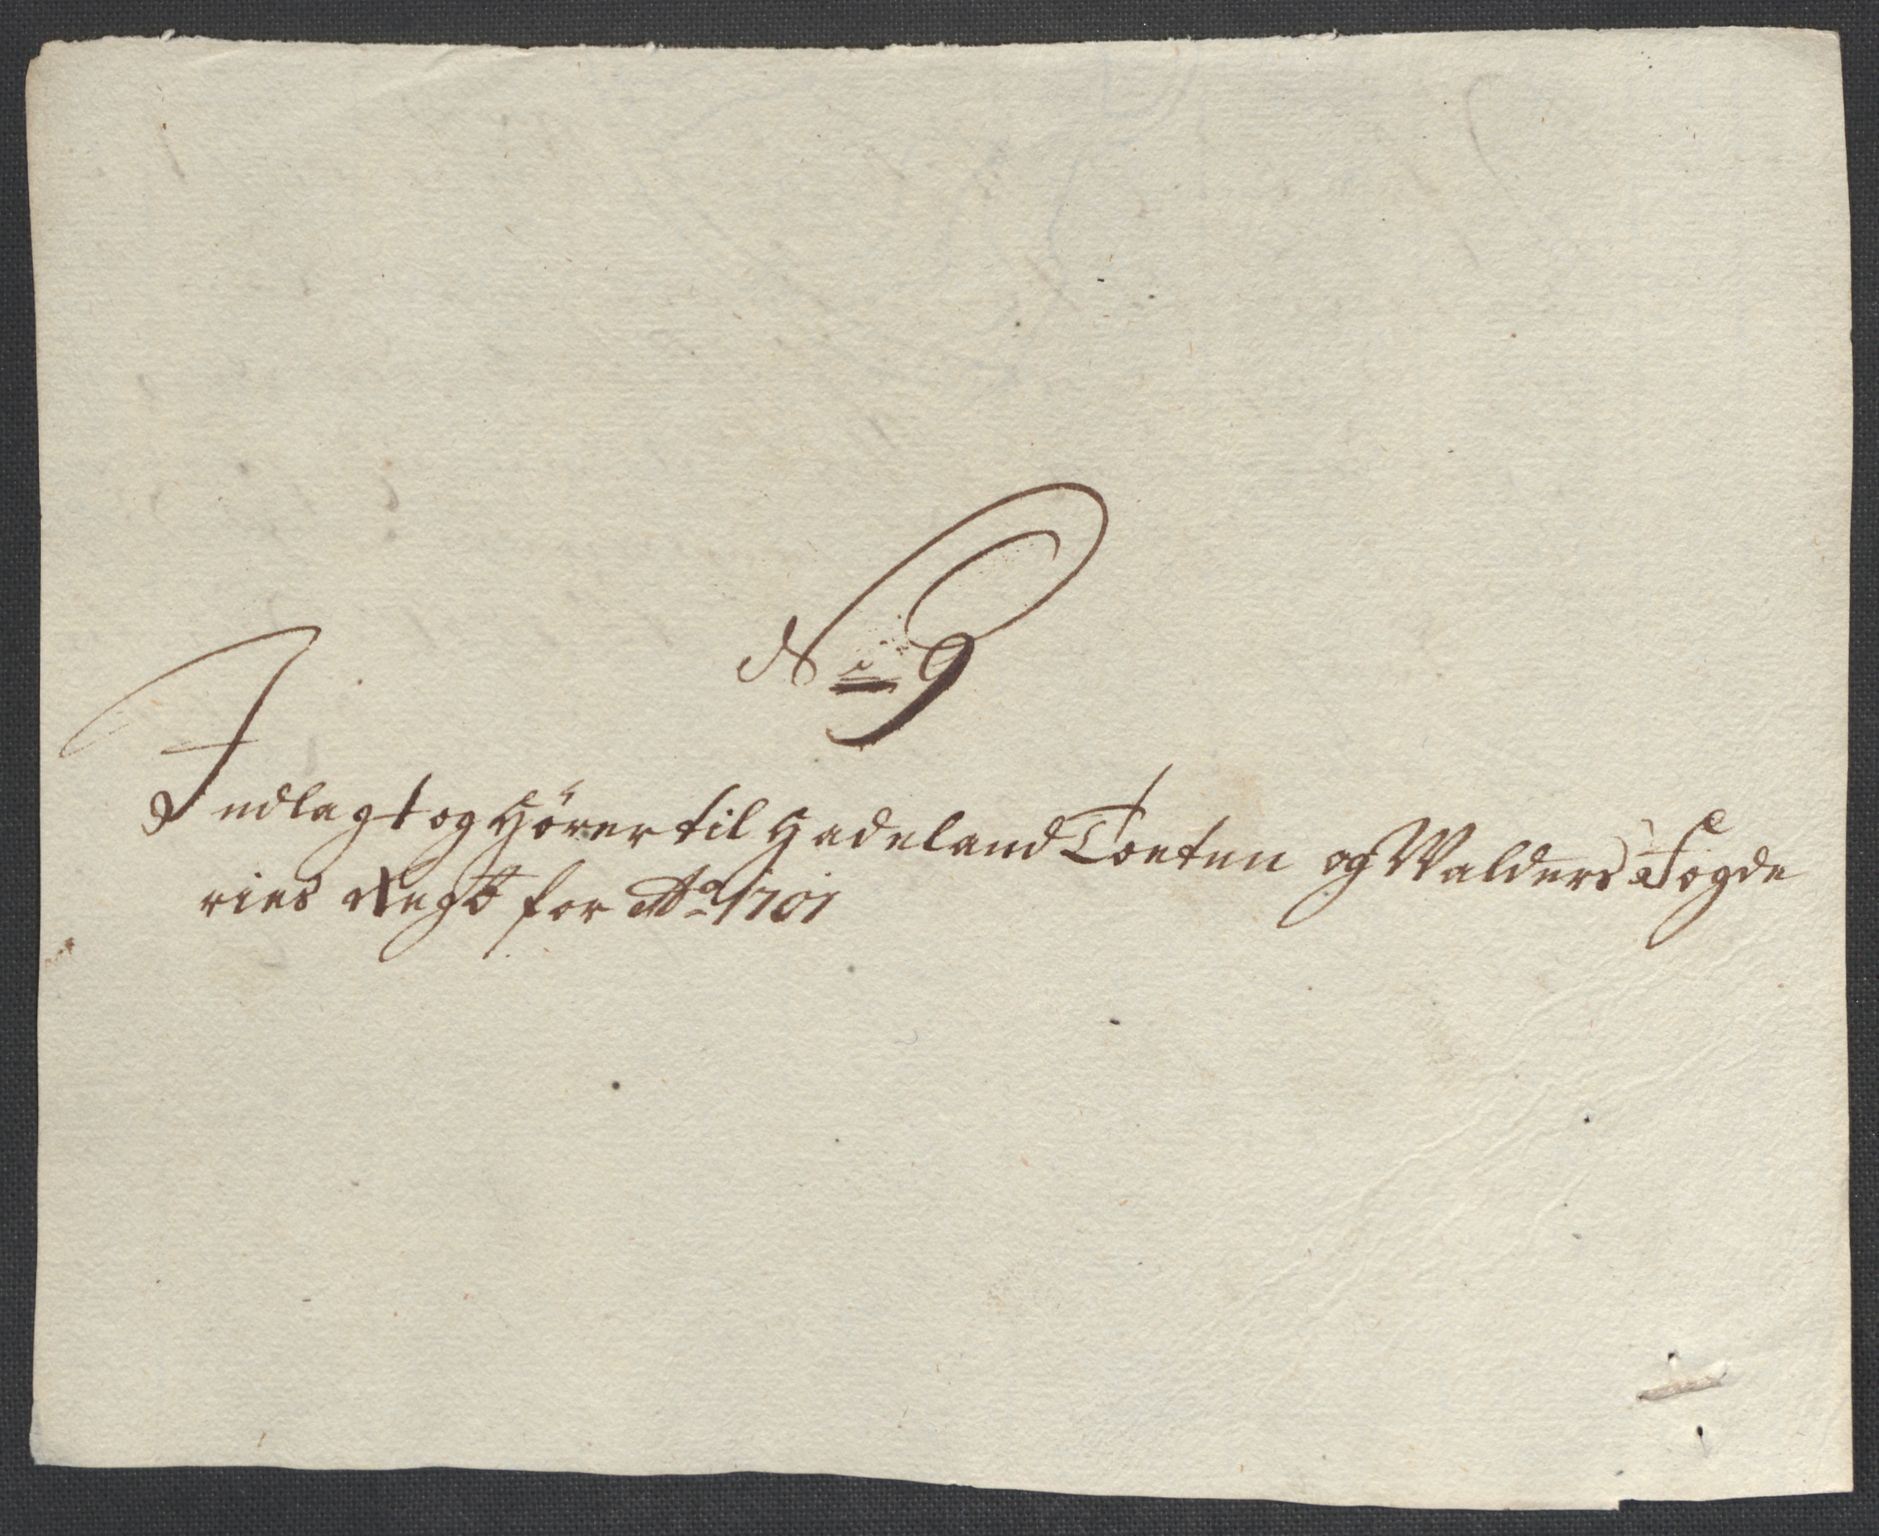 No 9
Indlagt og Hörer til Hadeland Toeten og Walders Fogde
ries Regsk for Ao 1701